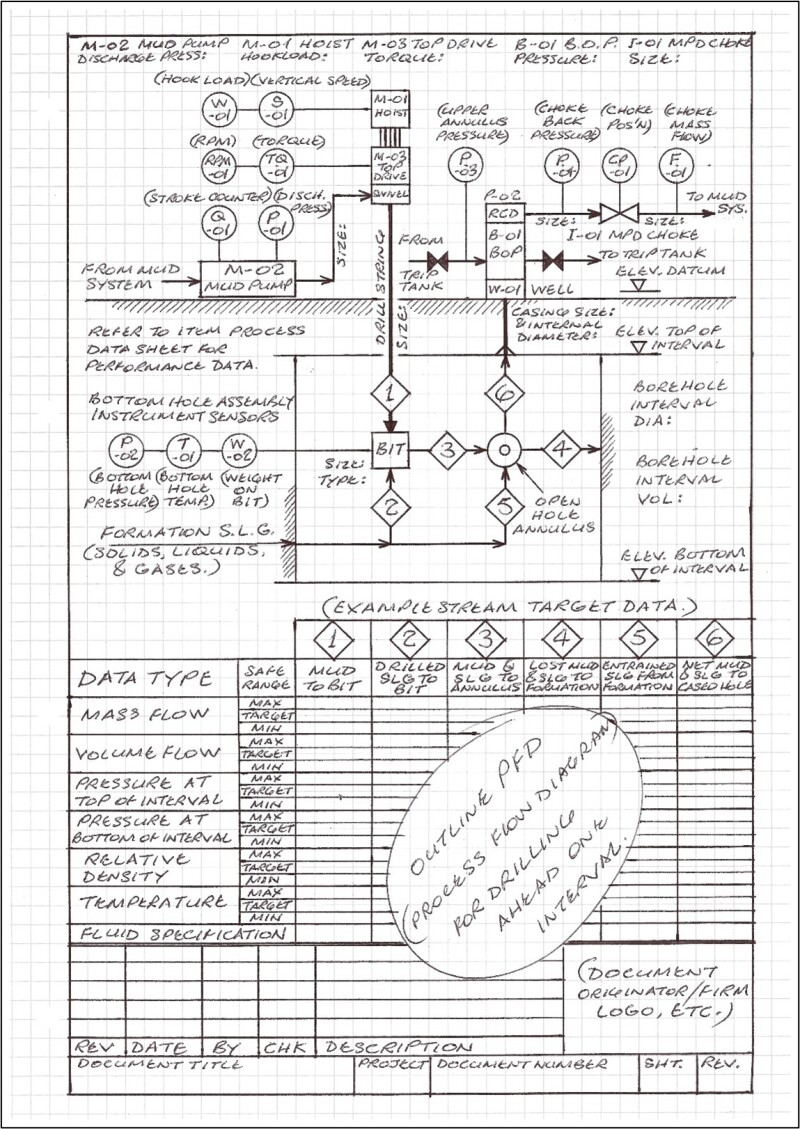 M-02 MUD PUMP
DISCHARGE PRESS:
M-01 HOIST
HOOKLOAD:
M-03 TOP DRIVE
TORQUE:
B-01 B.O.P.
PRESSURE:
I-01 MPD CHOKE
SIZE:
(HOOK LOAD)
(VERTICAL SPEED)
W
-01
S
-01
M-01
HOIST
(RPM)
(TORQUE)
RPM
-01
TQ
-01
M-03
TOP
DRIVE
SWIVEL
(STROKE COUNTER)
(DISCH.
PRESS)
Q
-01
P
-01
(UPPER
ANNULUS
PRESSURE)
(CHOKE
BACK
PRESSURE)
(CHOKE
POS'N)
(CHOKE
MASS
FLOW)
P.
-03
P.
-04
CP
-01
F.
-01
P-02
RCD
SIZE:
SIZE:
TO MUD
SYS.
I-01 MPD CHOKE
B-01
BOP
FROM
TRIP
TANK
TO TRIP TANK
W-01
WELL
ELEV. DATUM
FROM MUD
SYSTEM
M-02
MUD PUMP
SIZE:
DRILL STRING
SIZE:
CASING SIZE:
& INTERNAL
DIAMETER:
ELEV. TOP OF
INTERVAL
REFER TO ITEM PROCESS
DATA SHEET FOR
PERFORMANCE DATA.
BOTTOM HOLE ASSEMBLY
INSTRUMENT SENSORS
P
-02
T
-01
W
-02
(BOTTOM
HOLE
PRESSURE)
(BOTTOM
HOLE
TEMP.)
(WEIGHT
ON
BIT)
SIZE:
TYPE:
1
BIT
2
3
4
5
6
OPEN
HOLE
ANNULUS
BOREHOLE
INTERVAL
DIA:
BOREHOLE
INTERVAL
VOL:
FORMATION S.L.G.
(SOLIDS, LIQUIDS,
& GASES.)
ELEV. BOTTOM
OF INTERVAL
(EXAMPLE STREAM TARGET DATA.)
1 2 3 4 5 6
DATA TYPE
SAFE
RANGE
MUD
TO BIT
DRILLED
SLG TO
BIT
MUD &
SLG TO
ANNULUS
LOST MUD
& SLG TO
FORMATION
ENTRAINED
SLG FROM
FORMATION
NET MUD
& SLG TO
CASED HOLE
MASS FLOW
MAX
TARGET
MIN
VOLUME FLOW
MAX
TARGET
MIN
PRESSURE AT
TOP OF INTERVAL
MAX
TARGET
MIN
PRESSURE AT
BOTTOM OF INTERVAL
MAX
TARGET
MIN
RELATIVE
DENSITY
MAX
TARGET
MIN
TEMPERATURE
MAX
TARGET
MIN
FLUID SPECIFICATION
OUTLINE PFD
(PROCESS FLOW DIAGRAM)
FOR DRILLING
AHEAD ONE
INTERVAL.
(DOCUMENT
ORIGINATOR/FIRM
LOGO, ETC.)
REV DATE BY CHK DESCRIPTION
DOCUMENT TITLE PROJECT DOCUMENT NUMBER SHT. REV.